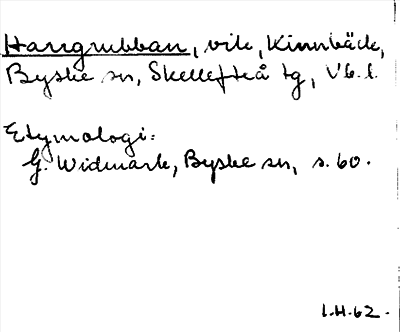 Harrgrubban, vik, Kinnbäck,
Byske sn, Skellefteå tg, Vb. l.
Etymologi:
G. Widmark, Byske sn, s. 60.
1.H.62.